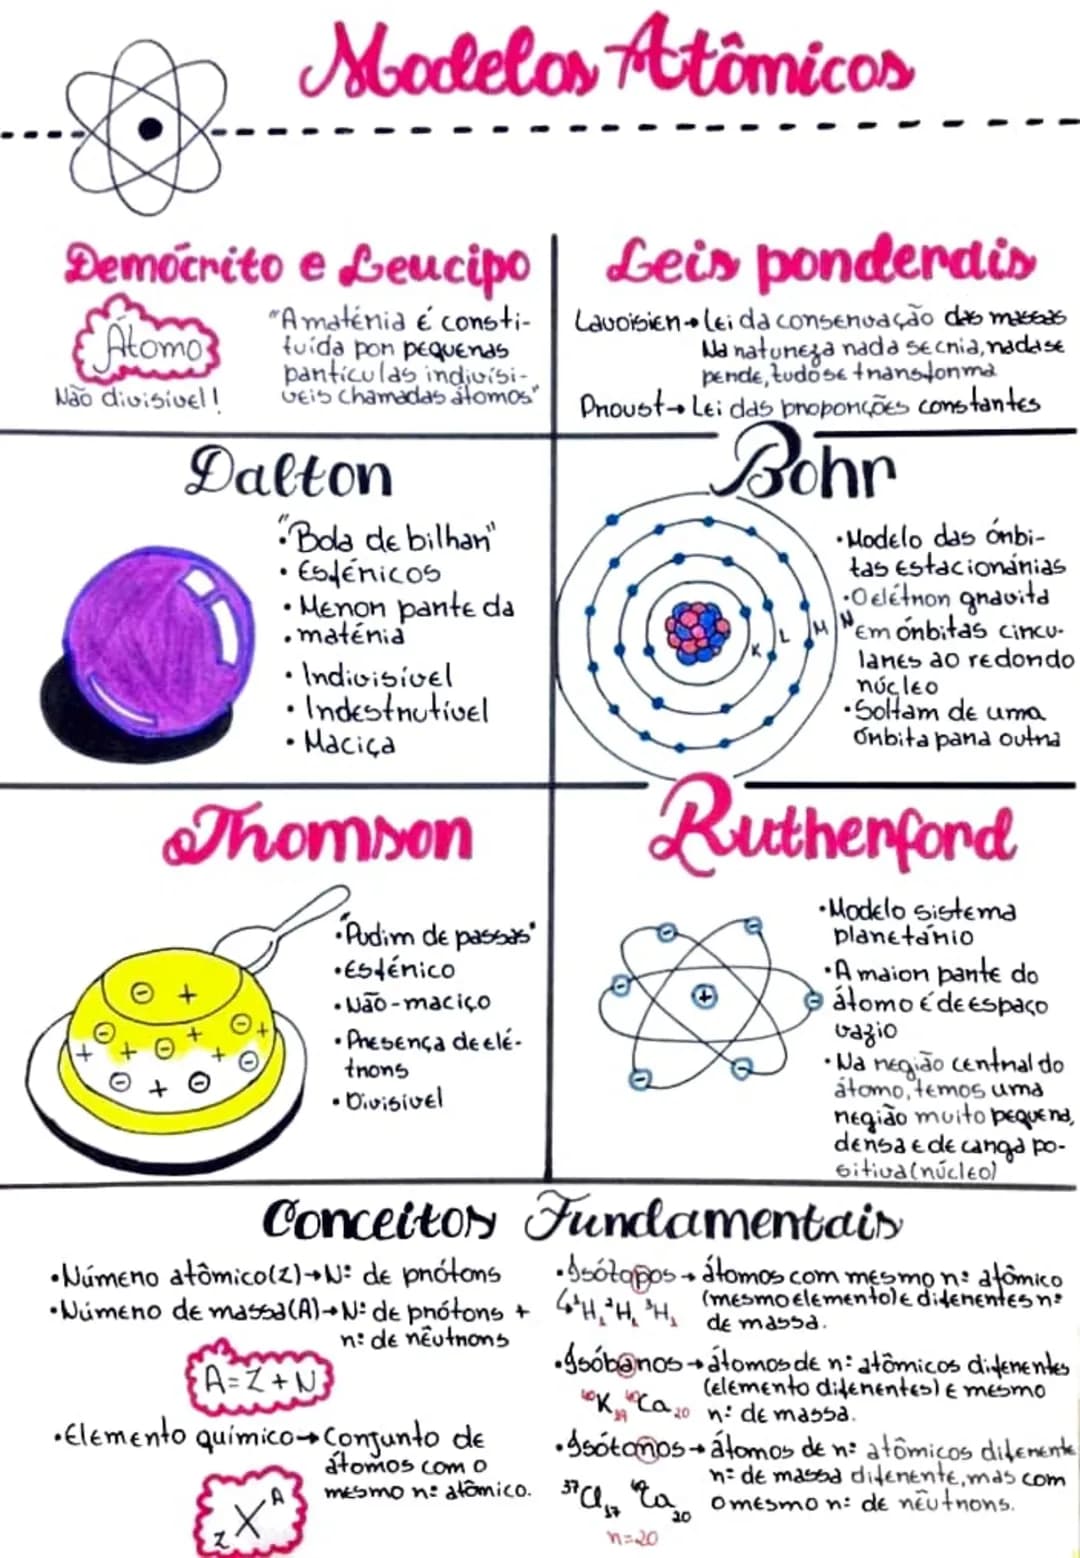 Modelos Atômicos
Demócrito e Leucipo
Átomo
Não divisível!
"A matéria é consti-
tuída por pequenas
partículas indivisí-
veis chamadas átomos"
Leis ponderais
Lavoisier→Lei da conservação das massas
Na natureza nada se cria, nada se
perde, tudo se transforma
Proust→Lei das proporções constantes
Dalton
•"Bola de bilhar"
•Esféricos
•Menor parte da
•matéria
•Indivisível
•Indestrutível
•Maciça
Bohr
K L M N
•Modelo das órbi-
tas estacionárias
•O elétron gravita
em órbitas circu-
lares ao redondo
núcleo
•Soltam de uma
órbita para outra
Thomson
- +
- + - +
+ + - + -
- + -
•"Pudim de passas"
•Esférico
•Não-maciço
•Presença de elé-
trons
•Divisível
Rutherford
- -
- + -
- -
•Modelo sistema
planetário
•A maior parte do
átomo é de espaço
vazio
•Na região central do
átomo, temos uma
região muito pequena,
densa e de carga po-
sitiva(núcleo)
Conceitos Fundamentais
•Número atômico(Z)→Nº de prótons
•Número de massa(A)→Nº de prótons +
nº de nêutrons
A=Z+N
•Elemento químico→Conjunto de
átomos com o
mesmo nº atômico.
zXᴬ
•Isótopos→átomos com mesmo nº atômico
(mesmo elemento)e diferentes nº
de massa.
↳¹H₁ ²H₁ ³H₁
•Isóbaros→átomos de nº atômicos diferentes
(elemento diferentes) e mesmo
nº de massa.
⁴⁰K₁₉ ⁴⁰Ca₂₀
•Isótonos→átomos de nº atômicos diferente
nº de massa diferente, mas com
o mesmo nº de nêutrons.
³⁷Cl₁₇ ⁴⁰Ca₂₀
n=20